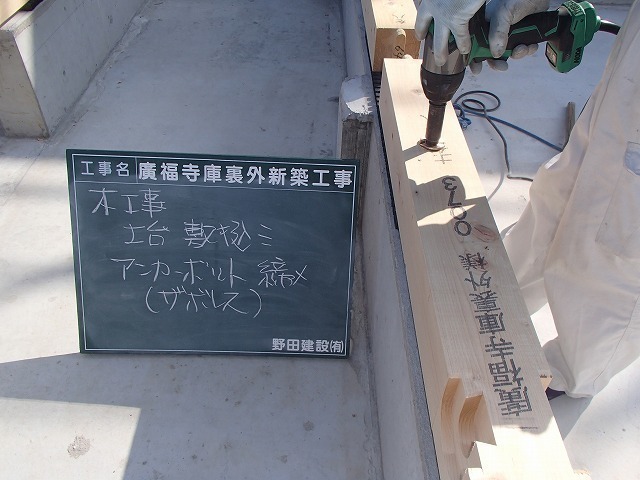 工事名 廣福寺庫裏外新築工事
木工事
土台 敷込ミ
アンカーボルト 締メ
(ザボレス)
野田建設(有)
0073
廣福寺庫裏外 様